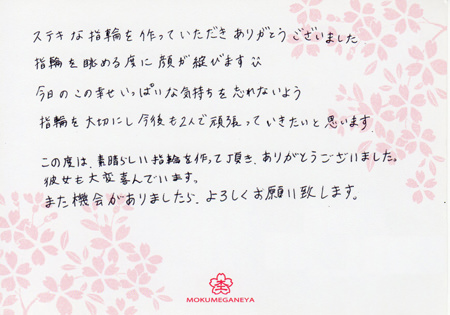 ステキな指輪を作っていただきありがとうございました
指輪を眺める度に顔が綻びます
今日のこの幸せいっぱいな気持ちを忘れないよう
指輪を大切にし今後も2人で頑張っていきたいと思います
この度は、素晴らしい指輪を作って頂き、ありがとうございました。
彼女も大変喜んでいます。
また機会がありましたら、よろしくお願い致します。
MOKUMEGANEYA